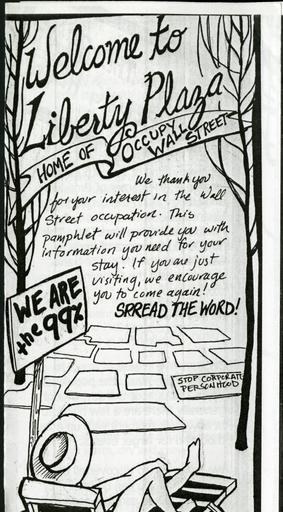 Welcome to
Liberty Plaza
HOME OF OCCUPY
WALL STREET
We thank you
for your interest in the Wall
Street occupation. This
pamphlet will provide you with
information you need for your
stay. If you are just
visiting, we encourage
you to come again!
SPREAD THE WORD!
WE ARE
the 99%
STOP CORPORATE
PERSONHOOD